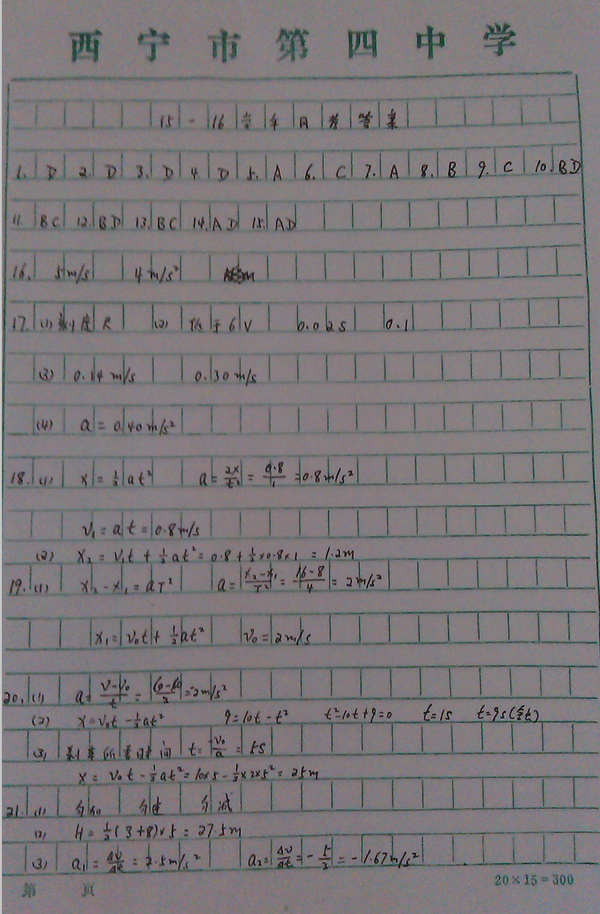 西宁市第四中学
15-16学年月考答案
1. D 2. D 3. D 4. D 5. A 6. C 7. A 8. B 9. C 10. BD
11. BC 12. BD 13. BC 14. AD 15. AD
16. 5m/s 4m/s²
17. (1) 刻度尺 (2) 低于6V 0.02s 0.1
(3) 0.14m/s 0.30m/s
(4) a=0.40m/s²
18. (1) x=½at² a=2x/t²=0.8/1=0.8m/s²
v₁=at=0.8m/s
(2) x₂=v₁t+½at²=0.8+½×0.8×1=1.2m
19. (1) x₂-x₁=aT² a=(x₂-x₁)/T²=(16-8)/4=2m/s²
x₁=v₀t+½at² v₀=2m/s
20. (1) a=(v-v₀)/t=(6-10)/2=-2m/s²
(2) x=v₀t-½at² 9=10t-t² t²-10t+9=0 t=1s t=9s(舍去)
(3) 刹车所需时间 t=-v₀/a=5s
x=v₀t-½at²=10×5-½×2×5²=25m
21. (1) 匀加 匀速 匀减
(2) H=½(3+8)×5=27.5m
(3) a₁=Δv/Δt=2.5m/s² a₂=Δv/Δt=-5/3=-1.67m/s²
第 页 20×15=300